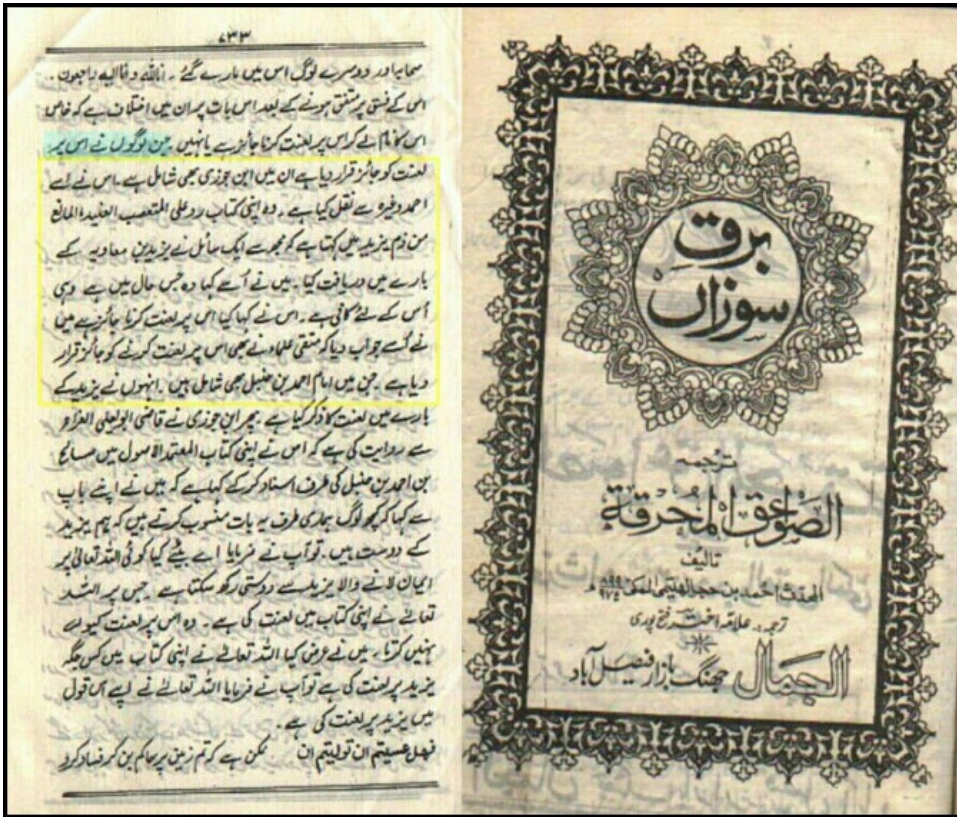 ۷۳۳
صحابہ اور دوسرے لوگ اس میں مارے گئے ۔ انا للہ و انا الیہ راجعون ۔
اس کے فسق پر متفق ہونے کے بعد اس بات پر ان میں اختلاف ہے کہ خاص
اس کا نام لے کر اس پر لعنت کرنا جائز ہے یا نہیں ۔ جن لوگوں نے اس پر
لعنت کو جائز قرار دیا ہے ان میں ابن جوزی بھی شامل ہے ۔ اس نے اسے
احمد وغیرہ سے نقل کیا ہے ۔ وہ اپنی کتاب رد علی المتعصب العنید المانع
من ذم یزید میں کہتا ہے کہ مجھ سے ایک سائل نے یزید بن معاویہ کے
بارے میں دریافت کیا ۔ میں نے اُسے کہا وہ جس حال میں ہے وہی
اُس کے لئے کافی ہے ۔ اس نے کہا کیا اس پر لعنت کرنا جائز ہے میں
نے اُسے جواب دیا کہ متقی علماء نے بھی اس پر لعنت کرنے کو جائز قرار
دیا ہے ۔ جن میں امام احمد بن حنبل بھی شامل ہیں ۔ انہوں نے یزید کے
بارے میں لعنت کا ذکر کیا ہے ۔ پھر ابن جوزی نے قاضی ابو یعلی الفراء
سے روایت کی ہے کہ اس نے اپنی کتاب المعتمد الاصول میں صالح
بن احمد بن حنبل کی طرف اسناد کر کے کہا ہے کہ میں نے اپنے باپ
سے کہا کہ کچھ لوگ ہماری طرف یہ بات منسوب کرتے ہیں کہ ہم یزید
کے دوست ہیں ۔ تو آپ نے فرمایا اے بیٹے کیا کوئی اللہ تعالیٰ پر
ایمان لانے والا یزید سے دوستی رکھ سکتا ہے جس پر اللہ
تعالے نے اپنی کتاب میں لعنت کی ہے ۔ وہ اس پر لعنت کیوں
نہیں کرتا ۔ میں نے عرض کیا اللہ تعالے نے اپنی کتاب میں کس جگہ
یزید پر لعنت کی ہے تو آپ نے فرمایا اللہ تعالے نے اپنے اس قول
میں یزید پر لعنت کی ہے ۔
فهل عسيتم ان توليتم ان ممکن ہے کہ تم زمین پر حاکم بن کر فساد کرو
برق
سوزاں
ترجمہ
الصواعق المحرقة
تالیف
المحدث احمد بن حجر الهيتمي المكي
ترجمہ ۔ علامہ اختر فتح پوری
الجمال جھنگ بازار فیصل آباد